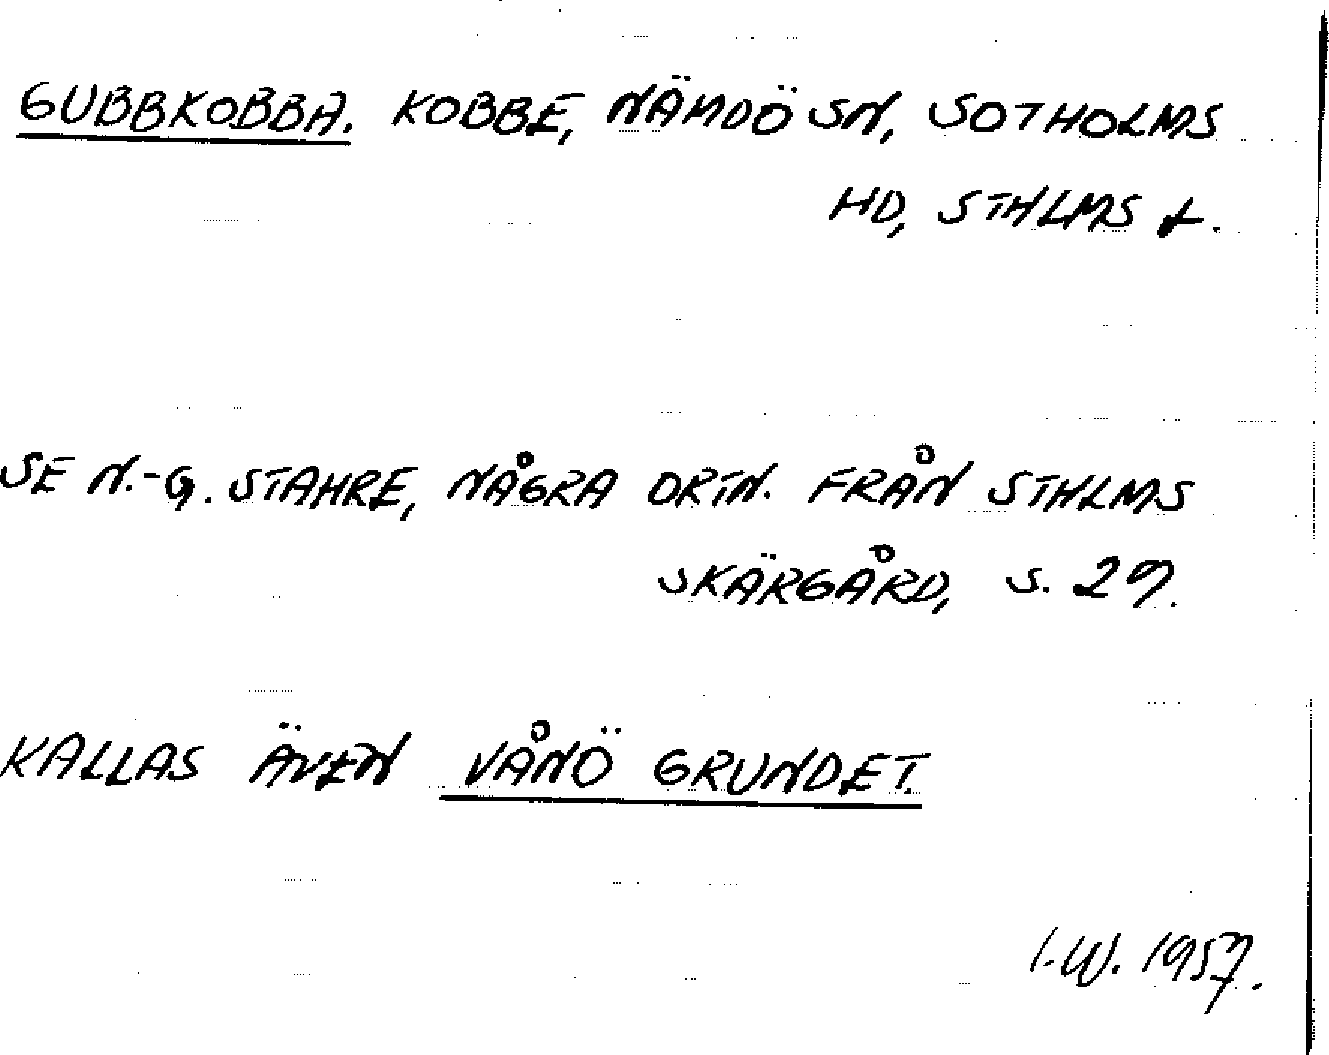 GUBBKOBBA. KOBBE, NÄMDÖ SN, SOTHOLMS
HD, STHLMS L.
SE N.-G. STAHRE, NÅGRA ORTN. FRÅN STHLMS
SKÄRGÅRD, S. 29.
KALLAS ÄVEN VÅNÖ GRUNDET.
I.W. 1957.